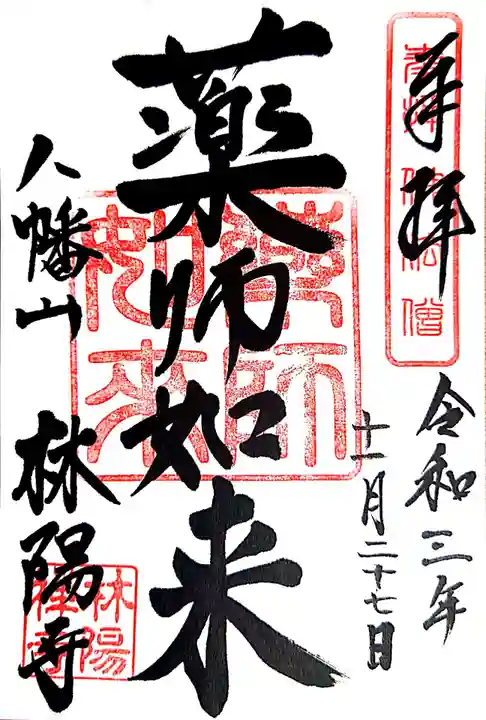 奉拝
令和三年
十一月二十七日
薬師如来
薬師如来
八幡山 林陽寺
林陽禅寺